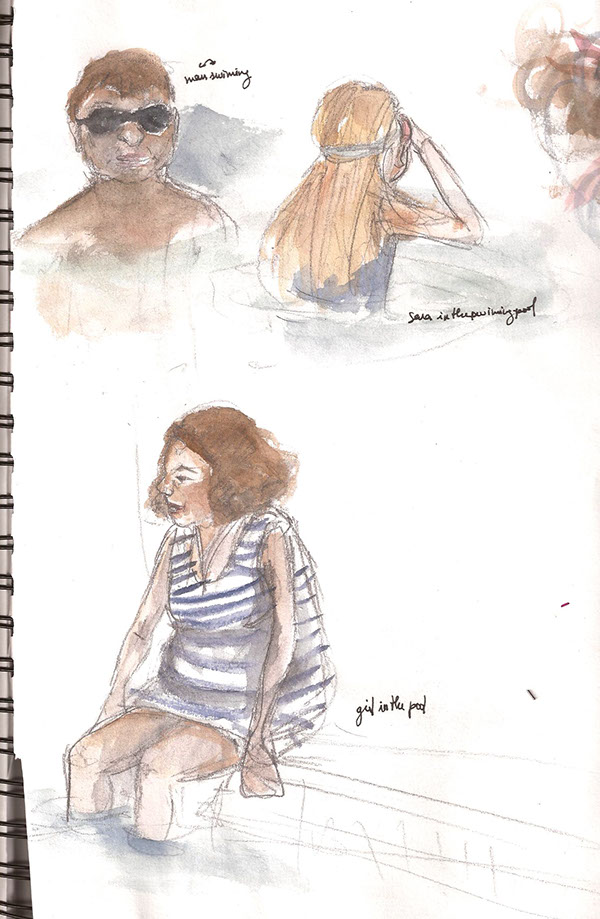 man swiming
sara in the swiming pool
girl in the pool